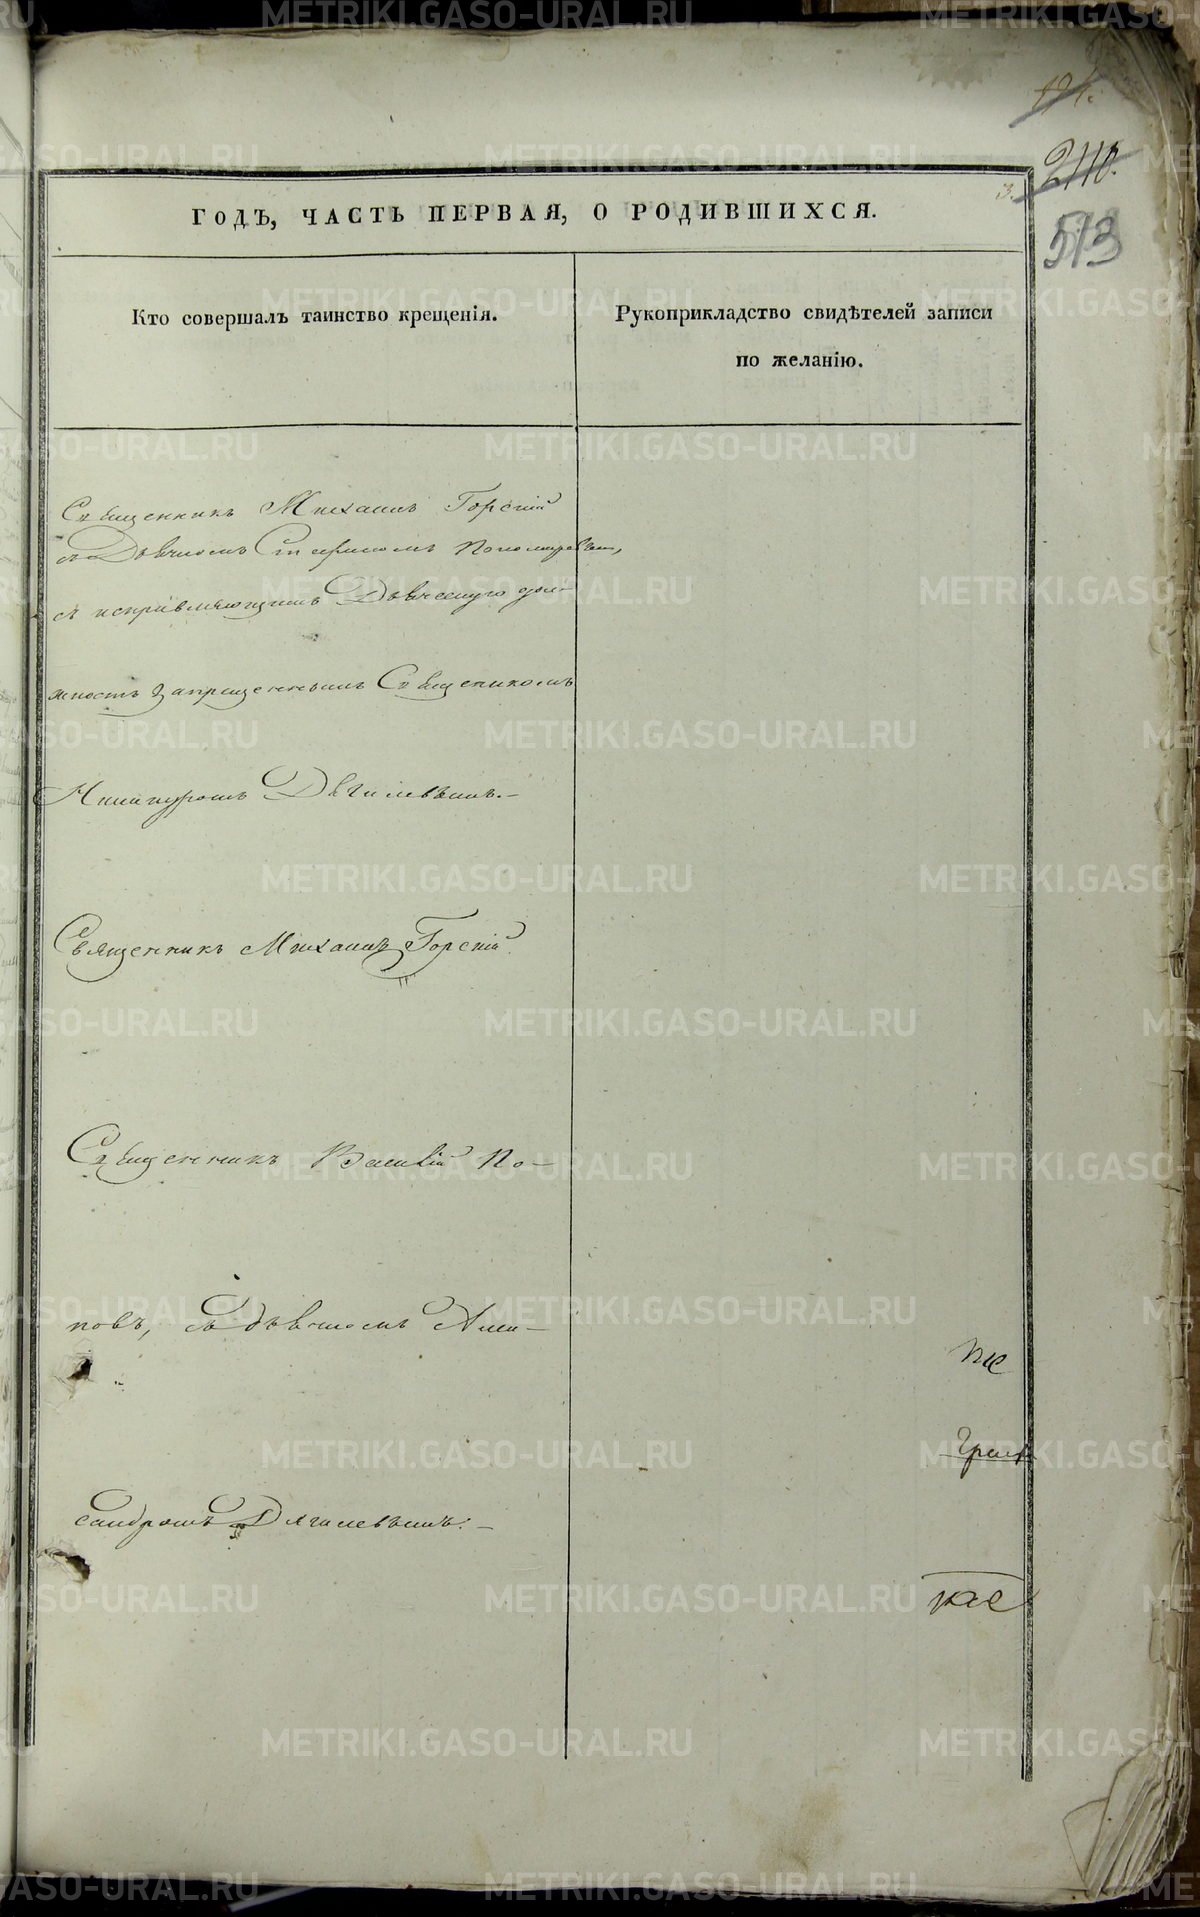 2110.
513
3.
ГОДЪ, ЧАСТЬ ПЕРВАЯ, О РОДИВШИХСЯ.
Кто совершалъ таинство крещенія.
Рукоприкладство свидѣтелей записи
по желанію.
Священникъ Михаилъ Горскій
съ Дьячкомъ Пономаревым,
и исправляющимъ Дьяческую дол-
жность Запрещеннымъ Священикомъ
Дягилевымъ.-
Священникъ Михаилъ Горскій.
Священникъ Василій По-
повъ, съ Дьячкомъ Алек-
сандромъ Дягилевымъ.-
METRIKI.GASO-URAL.RU